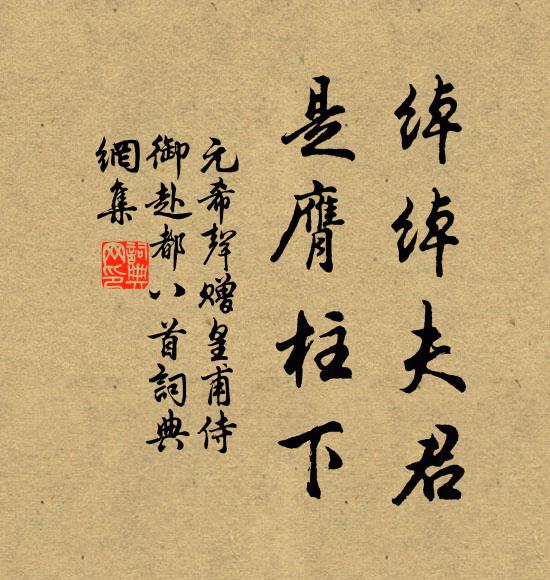 綽綽夫君
是膺柱下
元希聲贈皇甫侍
御赴都八首詞典
網集
詞典
网印